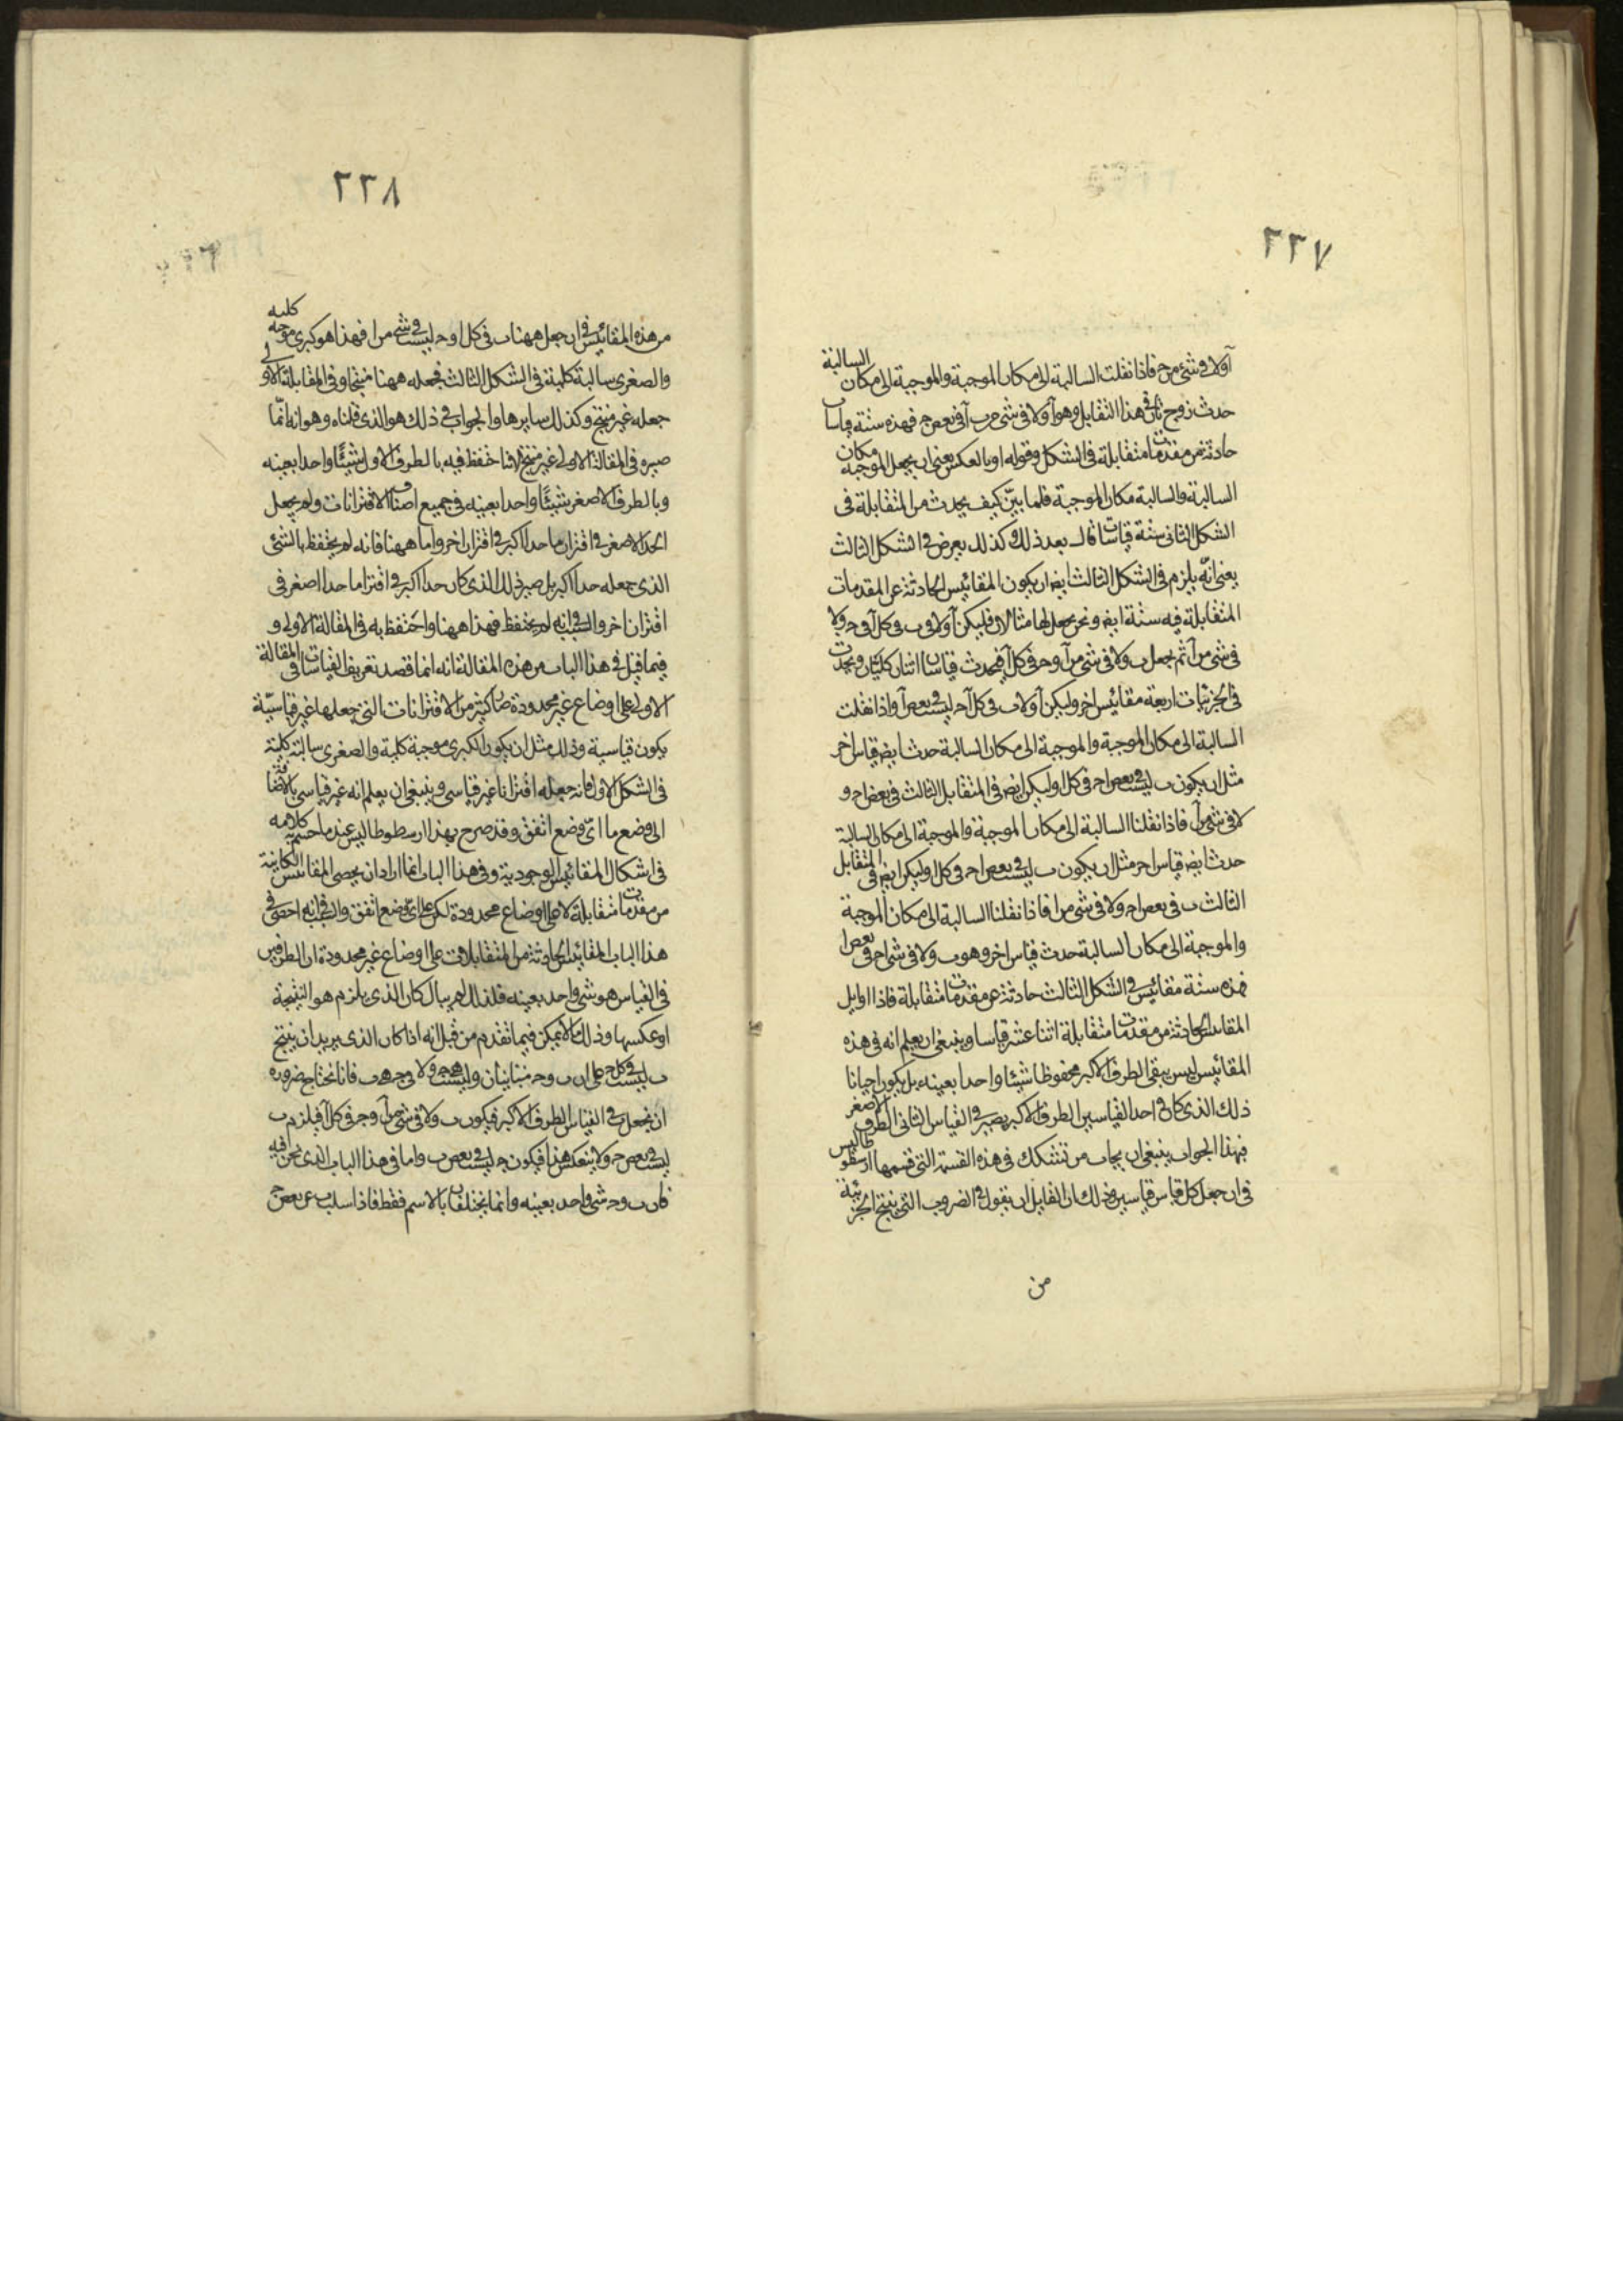 ٢٢٧
آ ولا فى شئ من ج فاذا نقلت السالبة الى مكان الموجبة والموجبة الى مكان السالبة
حدث زوج ثانى فى هذا التقابل وهو آ ولا فى شئ من ب آ فى بعض ج فهذه ستة قياسات
حادثة عن مقدمات متقابلة فى الشكل وقوله او بالعكس يعنى ان يجعل الموجبة مكان
السالبة والسالبة مكان الموجبة فلما بيّن كيف يحدث من المتقابلة فى
الشكل الثانى ستة قياسات قال بعد ذلك وكذلك يعرض فى الشكل الثالث
يعنى انّه يلزم فى الشكل الثالث ايضا ان يكون المقائيس الحادثة عن المقدمات
المتقابلة فيه ستة ايضا ونحن نجعل لها مثالا فليكن آ ولا فى ب وكل آ فى ج ولا
فى شئ من آ ثم نجعل ب ولا فى شئ من آ وج فى كل آ فيحدث قياسان اثنان كليان ويحدث
فى الجزئيات اربعة مقائيس اخر وليكن آ ولا ب فى كل آ ج ليست فى بعض آ واذا نقلت
السالبة الى مكان الموجبة والموجبة الى مكان السالبة حدث ايضا قياس اخر
مثل ان يكون ب ليست فى بعض ا ج فى كل ا وليكن ايضا فى المتقابل الثالث فى بعض ا ج و
لا فى شئ من آ فاذا نقلنا السالبة الى مكان الموجبة والموجبة الى مكان السالبة
حدث ايضا قياس اخر مثل ان يكون ب ليست فى بعض ا ج فى كل ا وليكن ايضا فى المتقابل
الثالث ب فى بعض ا ج ولا فى شئ من ا فاذا نقلنا السالبة الى مكان الموجبة
والموجبة الى مكان السالبة حدث قياس اخر وهو ب ولا فى شئ ا ج فى بعض ا
فهذه ستة مقائيس فى الشكل الثالث حادثة عن مقدمات متقابلة فاذا اوايل
المقائيس الحادثة من مقدمات متقابلة اثنا عشر قياسا وينبغى ان يعلم انه فى هذه
المقائيس ليس يبقى الطرف الاكبر محفوظا شيئا واحدا بعينه بل يكون احيانا
ذلك الذى كان فى احد القياسين الطرف الاكبر يصير فى القياس الثانى الطرف الاصغر
فبهذا الجواب ينبغى ان يجاب من تشكك فى هذه القسمة التى قسمها ارسطوطاليس
فى ان جعل كل قياس قياسين وذلك ان لقايل ان يقول فى الضروب التى ينتج الجزئية
من
٢٢٨
من هذه المقائيس فى ان جعل ههنا ب فى كل ا وج ليست فى شئ من ا فهذا هو كبرى موجبة كلية
والصغرى سالبة كلية فى الشكل الثالث فجعله ههنا منتجا وفى المقابلة الاولى
جعله غير منتج وكذلك سايرها والجواب فى ذلك هو الذى قلناه وهو انه انّما
صيره فى المقالة الاولى غير منتج لانا نحفظ فيه بالطرف الاول شيئًا واحدا بعينه
وبالطرف الاصغر شيئًا واحدا بعينه فى جميع اصناف الاقترانات ولم يجعل
الحد الاصغر فى اقتران ما حدا اكبر فى اقتران اخر واما ههنا فانه لم يحتفظ بالشئ
الذى جعله حدا اكبر بل صير ذلك الذى كان حدا اكبر فى اقتران ما حدا اصغر فى
اقتران اخر والسبب فى انه لم يحتفظ فهذا ههنا واحتفظ به فى المقالة الاولى و
فيما قيل فى هذا الباب من هذه المقالة انه انما قصد تعريف القياسات فى المقالة
الاولى على اوضاع غير محدودة صار كثير من الاقترانات التى جعلها غير قياسيّة
يكون قياسية وذلك مثل ان يكون الكبرى موجبة كلية والصغرى سالبة كلية
فى الشكل الاول فانه جعله اقترانا غير قياسى وينبغى ان يعلم انه غير قياسى بالاضافة
الى وضع ما اىّ وضع اتفق وقد صرح بهذا ارسطوطاليس عند ما ختم كلامه
فى اشكال المقائيس الوجودية وفى هذا الباب انما اراد ان يحصى المقائيس الكاينة
من مقدمات متقابلة لا على اوضاع محدودة لكن على اىّ وضع اتفق والسبب فى انه احصى فى
هذا الباب المقائيس الحادثة من المتقابلات على اوضاع غير محدودة ان الطرفين
فى القياس هو شئ واحد بعينه فلذلك لم يبال كان الذى يلزم هو النتيجة
او عكسها وذلك ما لا يمكن فيما تقدم من قبل انه اذا كان الذى يريد ان ينتج
ب ليست فى كل ج على ان ب وج متباينان وليست ج هو ولا ج هو ب فانا نحتاج ضرورة
ان نجعل فى القياس الطرف الاكبر فيكون ب ولا فى شئ من آ وج فى كل آ فيلزم ب
ليست فى بعض ج ولا ينعكس هذا فيكون ج ليست فى بعض ب واما فى هذا الباب الذى نحن فيه
فان ب وج شئ واحد بعينه وانما يختلفان بالاسم فقط فاذا سلب ب عن بعض ج